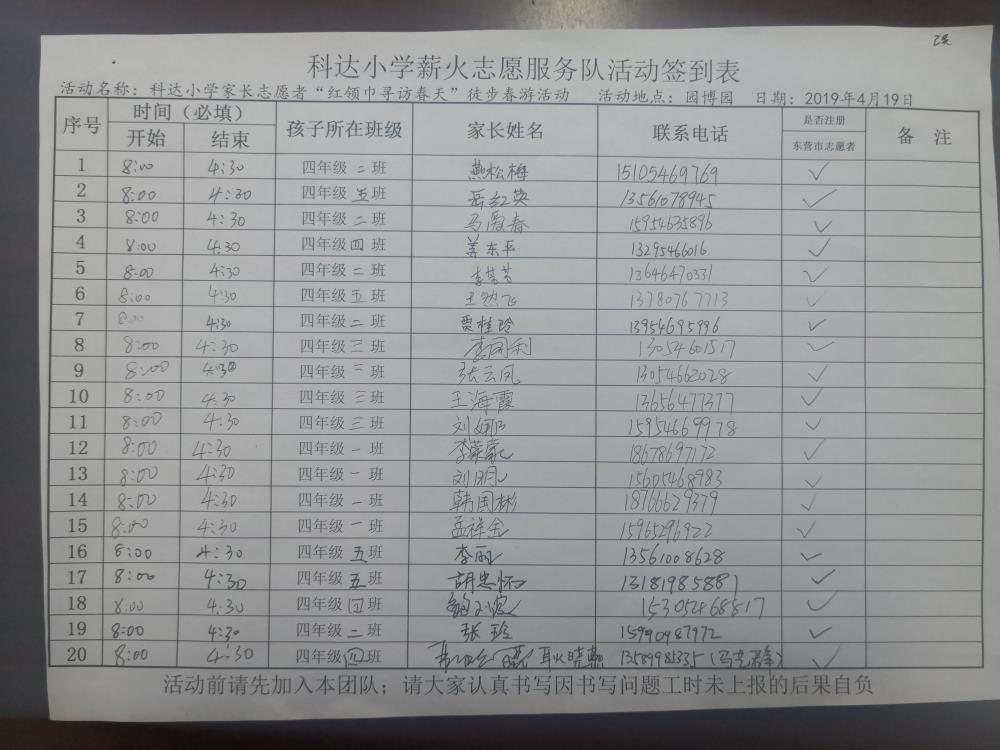 科达小学薪火志愿服务队活动签到表
活动名称：科达小学家长志愿者“红领巾寻访春天”徒步春游活动 活动地点：园博园 日期：2019年4月19日
序号 时间（必填） 孩子所在班级 家长姓名 联系电话 是否注册 备 注
开始 结束 东营市志愿者
1 8:00 4:30 四年级 二 班 燕松梅 15105469769 ✓
2 8:00 4:30 四年级 五 班 岳红英 13561078945 ✓
3 8:00 4:30 四年级 二 班 马爱春 15954635896 ✓
4 8:00 4:30 四年级 四 班 姜东平 13295466016 ✓
5 8:00 4:30 四年级 二 班 李芳芳 13646470331 ✓
6 8:00 4:30 四年级 五 班 王然飞 13780767713 ✓
7 8:00 4:30 四年级 二 班 贾桂玲 13954695996 ✓
8 8:00 4:30 四年级 三 班 李国利 13054601517 ✓
9 8:00 4:30 四年级 二 班 张云凤 13054662028 ✓
10 8:00 4:30 四年级 三 班 王海霞 13656477377 ✓
11 8:00 4:30 四年级 三 班 刘娜 15954669978 ✓
12 8:00 4:30 四年级 一 班 李荣 18678697172 ✓
13 8:00 4:30 四年级 一 班 刘 15605468983 ✓
14 8:00 4:30 四年级 一 班 韩国彬 18766629379 ✓
15 8:00 4:30 四年级 一 班 孟祥金 15965296922 ✓
16 8:00 4:30 四年级 五 班 李丽 13561008628 ✓
17 8:00 4:30 四年级 五 班 胡忠怀 13181985881 ✓
18 8:00 4:30 四年级 四 班 15305468817 ✓
19 8:00 4:30 四年级 二 班 张玲 15990487972 ✓
20 8:00 4:30 四年级 四 班 耿晓燕 1358998335 ✓
活动前请先加入本团队；请大家认真书写因书写问题工时未上报的后果自负